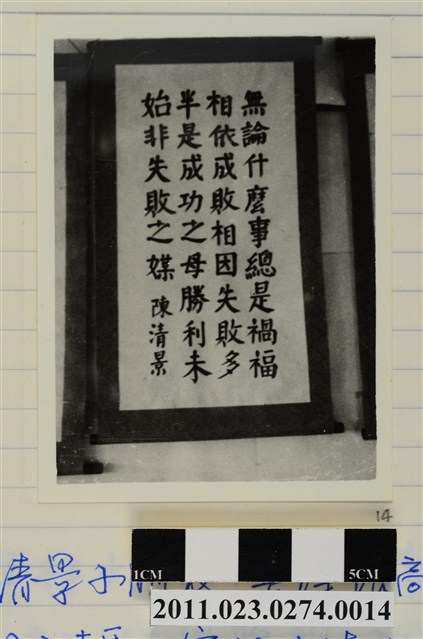 無論什麼事總是禍福
相依成敗相因失敗多
半是成功之母勝利未
始非失敗之媒
陳清景
14
1CM 5CM
2011.023.0274.0014